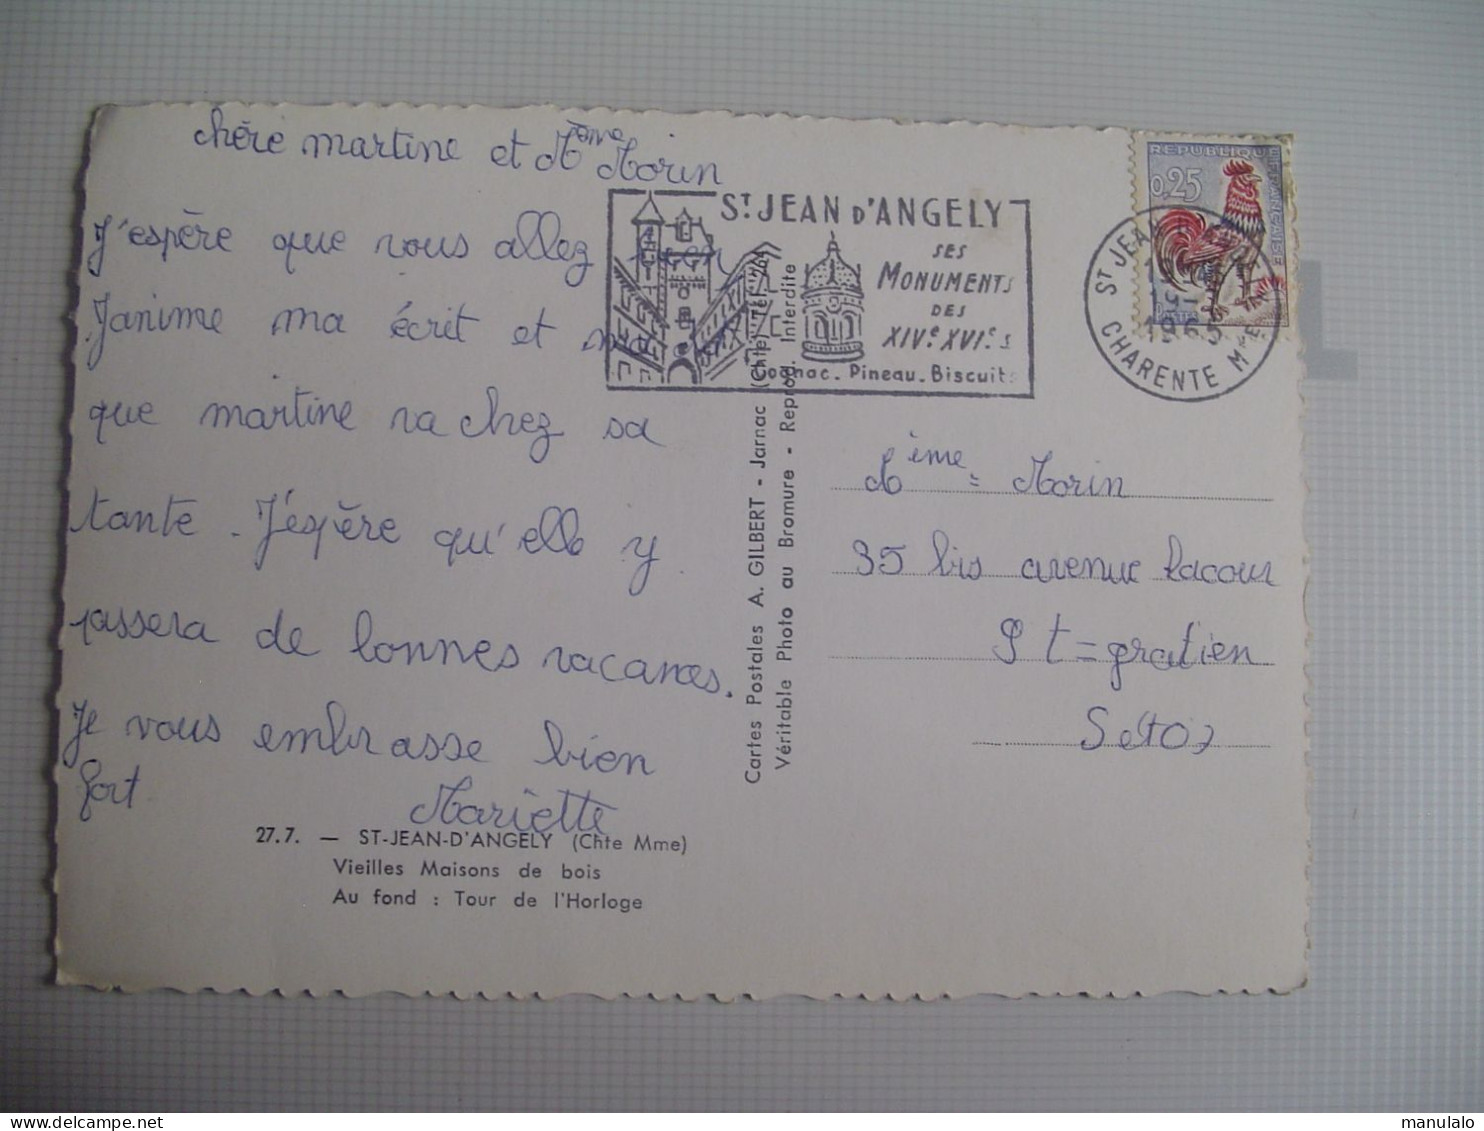 chère martine et Mème Morin
J'espère que vous allez bien
Janime ma écrit et ma
que martine va chez sa
tante. J'éspère qu'elle y
passera de bonnes vacances.
Je vous embrasse bien
fort
Mariette
27.7. — ST-JEAN-D'ANGELY (Chte Mme)
Vieilles Maisons de bois
Au fond : Tour de l'Horloge
Cartes Postales A. GILBERT - Jarnac (Chte) Tél.
Véritable Photo au Bromure - Reprod. Interdite
ST JEAN D'ANGELY
SES
MONUMENTS
DES
XIVe XVIe S
Cognac. Pineau. Biscuits
REPUBLIQUE FRANÇAISE
0,25
POSTES
ST JEAN
1965
CHARENTE Mme
Mème = Morin
35 bis avenue Lacour
St=gratien
Set O
manulalo